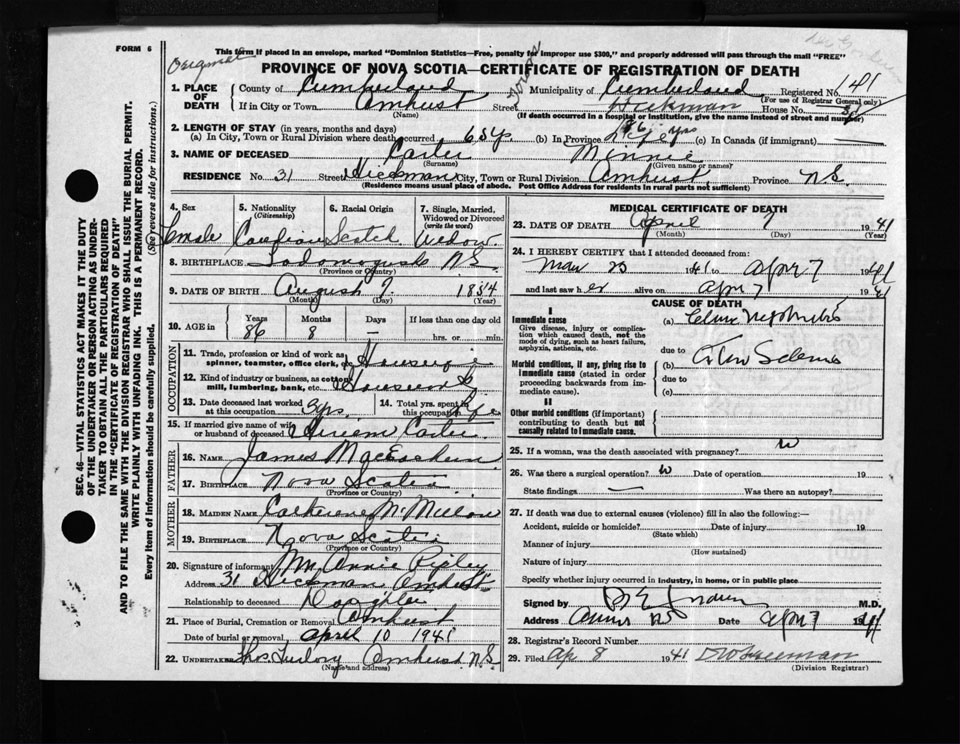 FORM 6
This form if placed in an envelope, marked "Dominion Statistics—Free, penalty for improper use $300," and properly addressed will pass through the mail "FREE"
Original
PROVINCE OF NOVA SCOTIA—CERTIFICATE OF REGISTRATION OF DEATH
1. PLACE OF DEATH
County of Cumberland Municipality of Cumberland Registered No. 141
(For use of Registrar General only)
If in City or Town Amherst Street Hickman House No. 31
(Name) (If death occurred in a hospital or institution, give the name instead of street and number)
2. LENGTH OF STAY (in years, months and days)
(a) In City, Town or Rural Division where death occurred 65 yrs. (b) In Province yrs (c) In Canada (if immigrant) —
3. NAME OF DECEASED Carter Minnie
(Surname) (Given name or names)
RESIDENCE No. 31 Street Hickman City, Town or Rural Division Amherst Province N.S.
(Residence means usual place of abode. Post Office Address for residents in rural parts not sufficient)
SEC. 46—VITAL STATISTICS ACT MAKES IT THE DUTY
OF THE UNDERTAKER OR PERSON ACTING AS UNDER-
TAKER TO OBTAIN ALL THE PARTICULARS REQUIRED
IN THE "CERTIFICATE OF REGISTRATION OF DEATH"
AND TO FILE THE SAME WITH THE DIVISION REGISTRAR WHO SHALL ISSUE THE BURIAL PERMIT.
WRITE PLAINLY WITH UNFADING INK. THIS IS A PERMANENT RECORD.
Every item of information should be carefully supplied. (See reverse side for instructions.)
4. Sex 5. Nationality (Citizenship) 6. Racial Origin 7. Single, Married, Widowed or Divorced (write the word)
Female Canadian Scotch Widow
8. BIRTHPLACE N.S.
(Province or Country)
9. DATE OF BIRTH August 7. 1854
(Month) (Day) (Year)
10. AGE in Years Months Days If less than one day old
86 8 — hrs. or min.
OCCUPATION
11. Trade, profession or kind of work as spinner, teamster, office clerk, etc. Housewife
12. Kind of industry or business, as cotton mill, lumbering, bank, etc.
13. Date deceased last worked at this occupation yrs. 14. Total yrs. spent in this occupation Life
15. If married give name of wife or husband of deceased Hiriem Carter
FATHER
16. NAME James MacEachern
17. Birthplace Nova Scotia
(Province or Country)
MOTHER
18. MAIDEN NAME Catherine McMillan
19. BIRTHPLACE Nova Scotia
(Province or Country)
20. Signature of informant Mrs Annie Ripley
Address 31 Hickman Amherst
Relationship to deceased Daughter
21. Place of Burial, Cremation or Removal Amherst
Date of burial or removal April 10 1941
22. Undertaker Thos Furlong Amherst N.S.
(Name and address)
MEDICAL CERTIFICATE OF DEATH
23. DATE OF DEATH April 7 1941
(Month) (Day) (Year)
24. I HEREBY CERTIFY that I attended deceased from:
Mar 25 1941 to Apr 7 1941
and last saw her alive on Apr 7 1941
CAUSE OF DEATH
I
Immediate cause (a)
Give disease, injury or complication which caused death, not the mode of dying, such as heart failure, asphyxia, asthenia, etc.
due to
Morbid conditions, if any, giving rise to Immediate cause (stated in order proceeding backwards from immediate cause) (b)
due to
(c)
II
Other morbid conditions (if important) contributing to death but not causally related to Immediate cause.
25. If a woman, was the death associated with pregnancy?
26. Was there a surgical operation? Date of operation 19
State findings — Was there an autopsy?
27. If death was due to external causes (violence) fill in also the following:—
Accident, suicide or homicide? Date of injury 19
(State which)
Manner of injury
(How sustained)
Nature of injury
Specify whether injury occurred in industry, in home, or in public place
Signed by M.D.
Address Date Apr 7 1941
28. Registrar's Record Number
29. Filed Ap 8 1941
(Division Registrar)